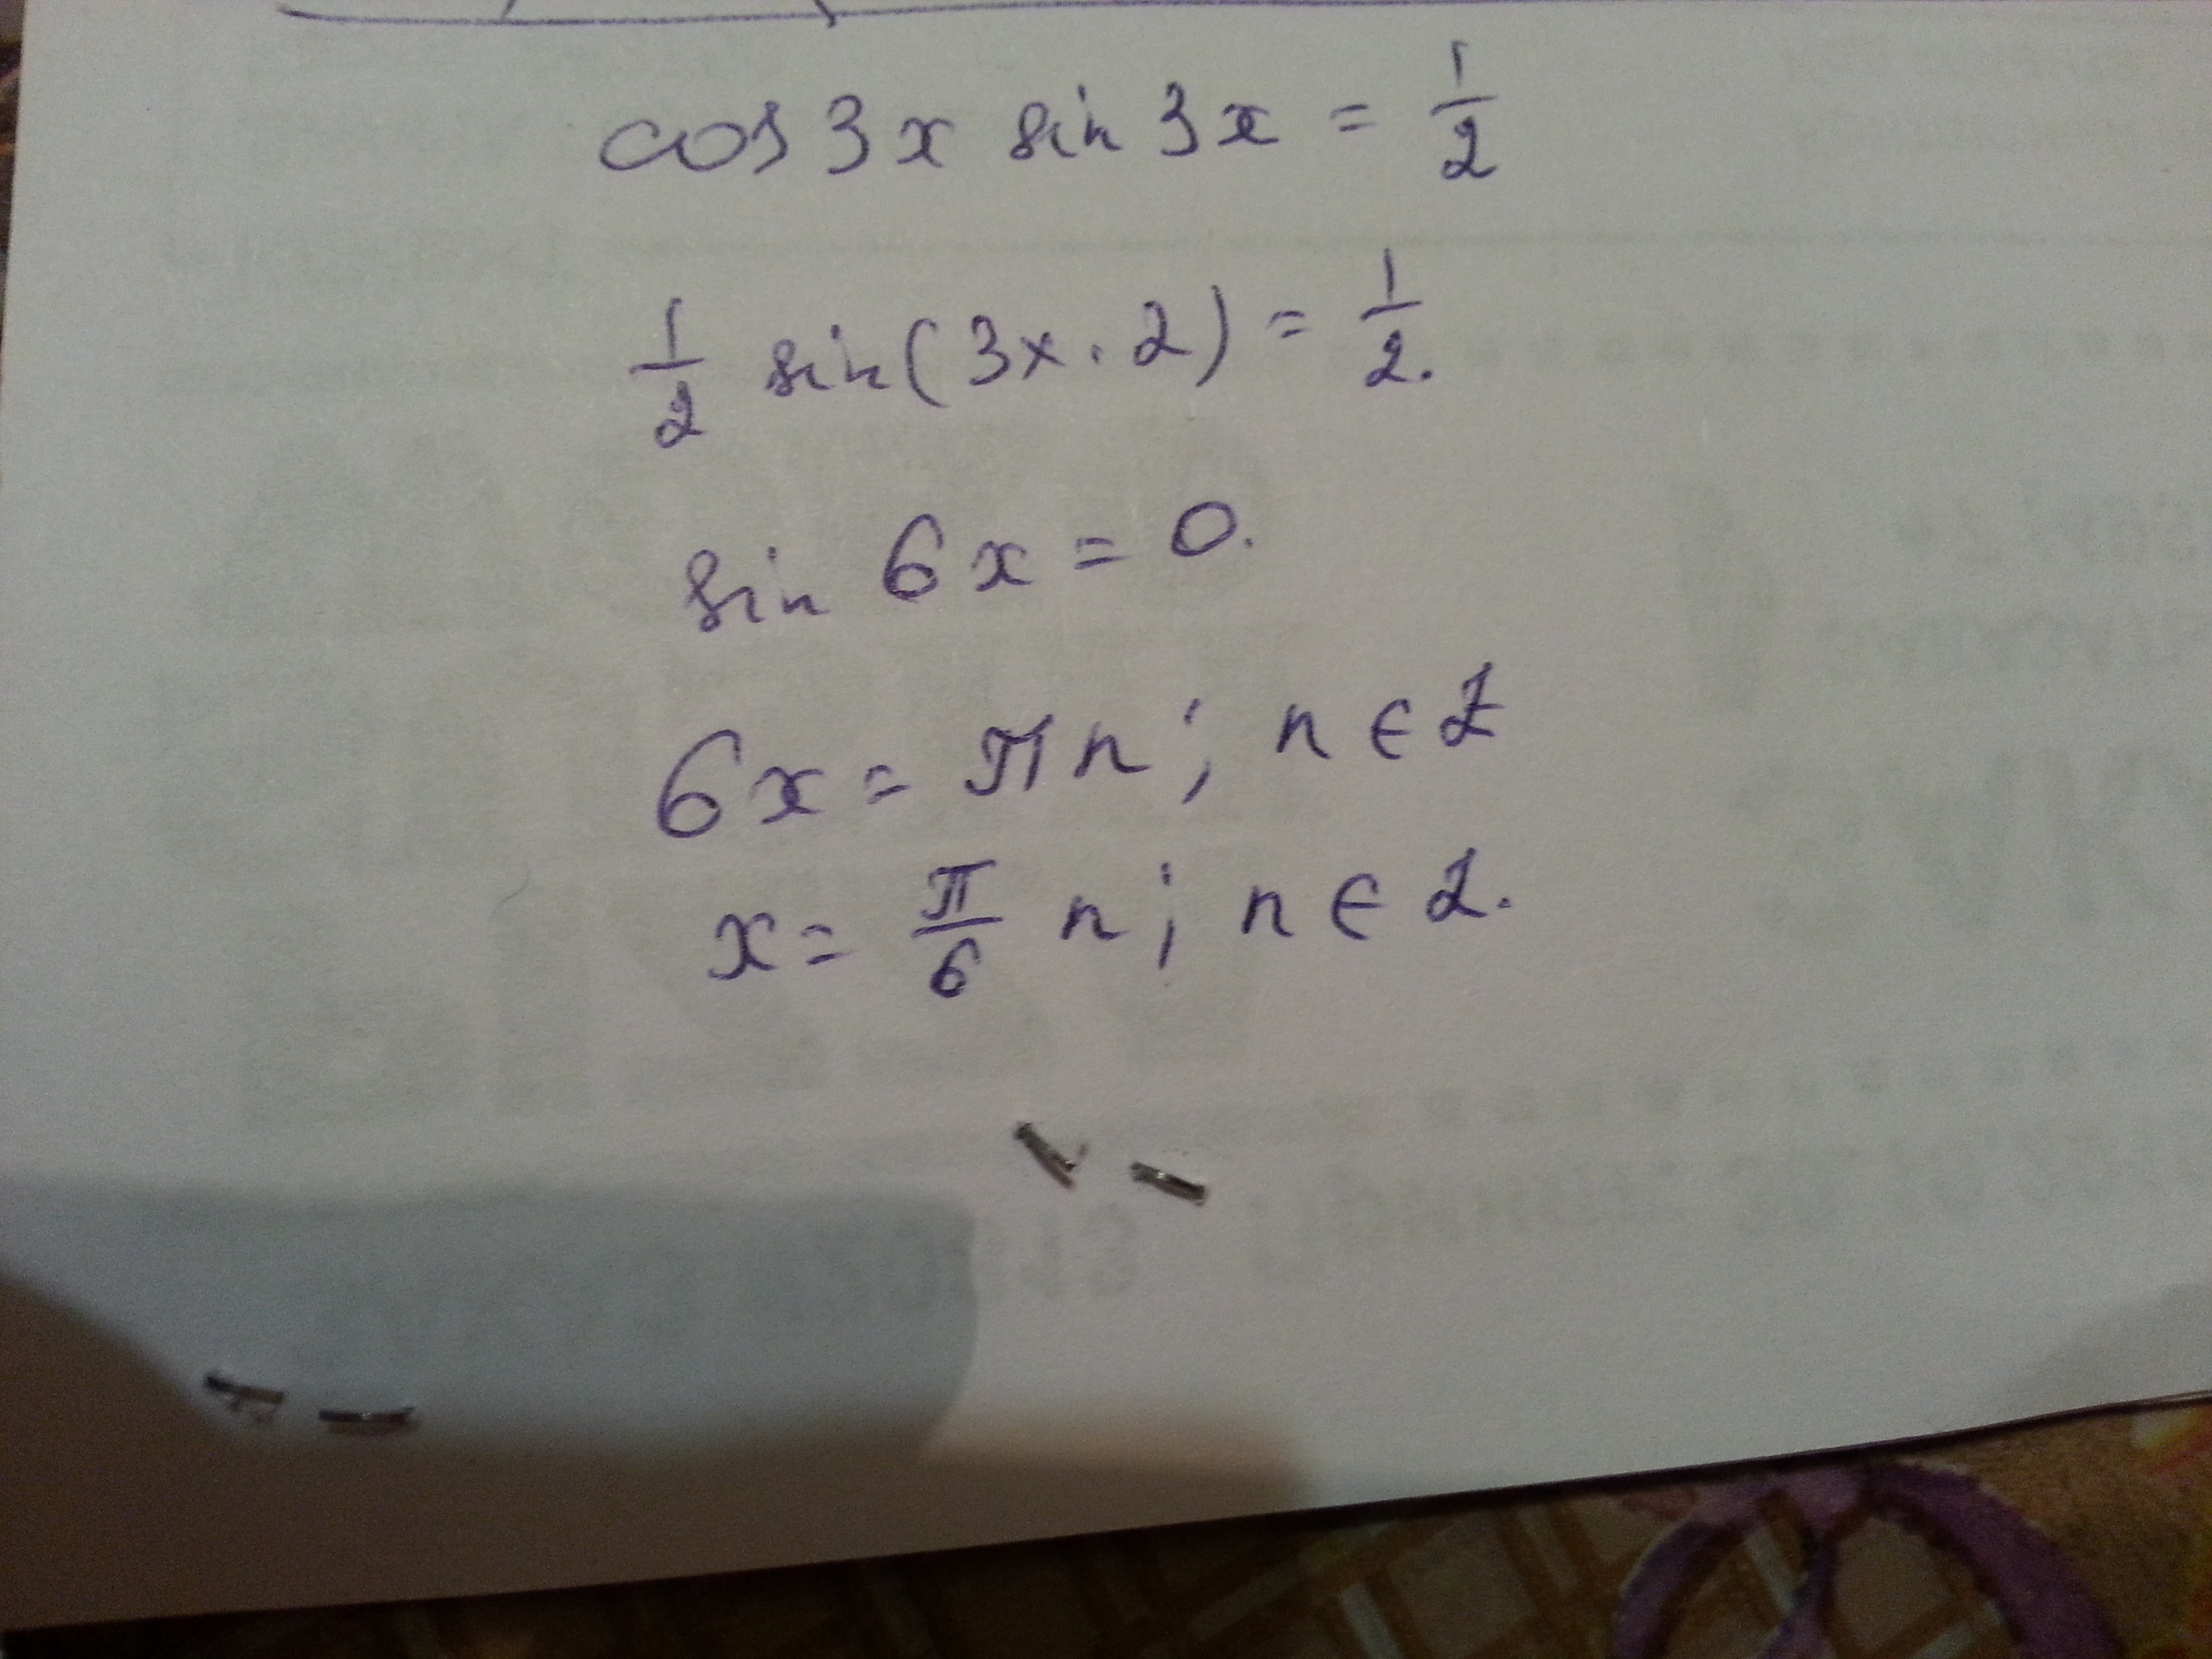 cos 3x sin 3x = 1/2
1/2 sin(3x · 2) = 1/2.
sin 6x = 0.
6x = πn; n ∈ Z
x = π/6 n; n ∈ Z.